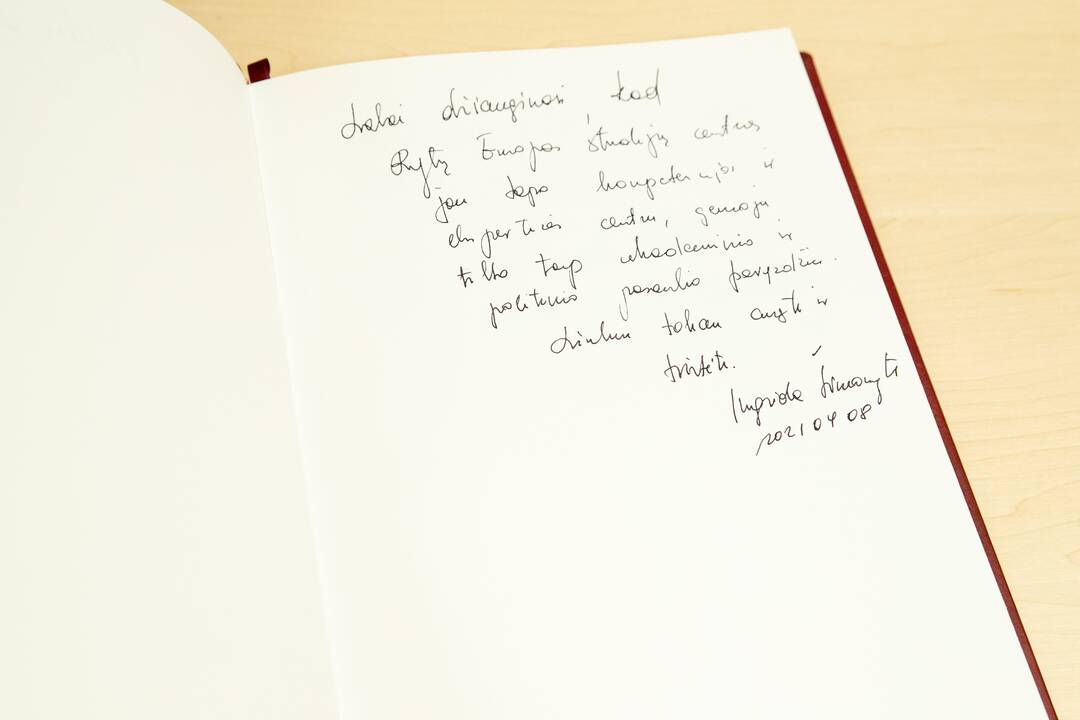 Labai džiaugiuosi kad
Rytų Europos studijų centras
jau tapo kompetencijos ir
ekspertizės centru, geruoju
tilto tarp akademinio ir
politinio pasaulio pavyzdžiu.
Linkiu tokam augti ir
tvirtėti.
Ingrida Šimonytė
2021 04 08